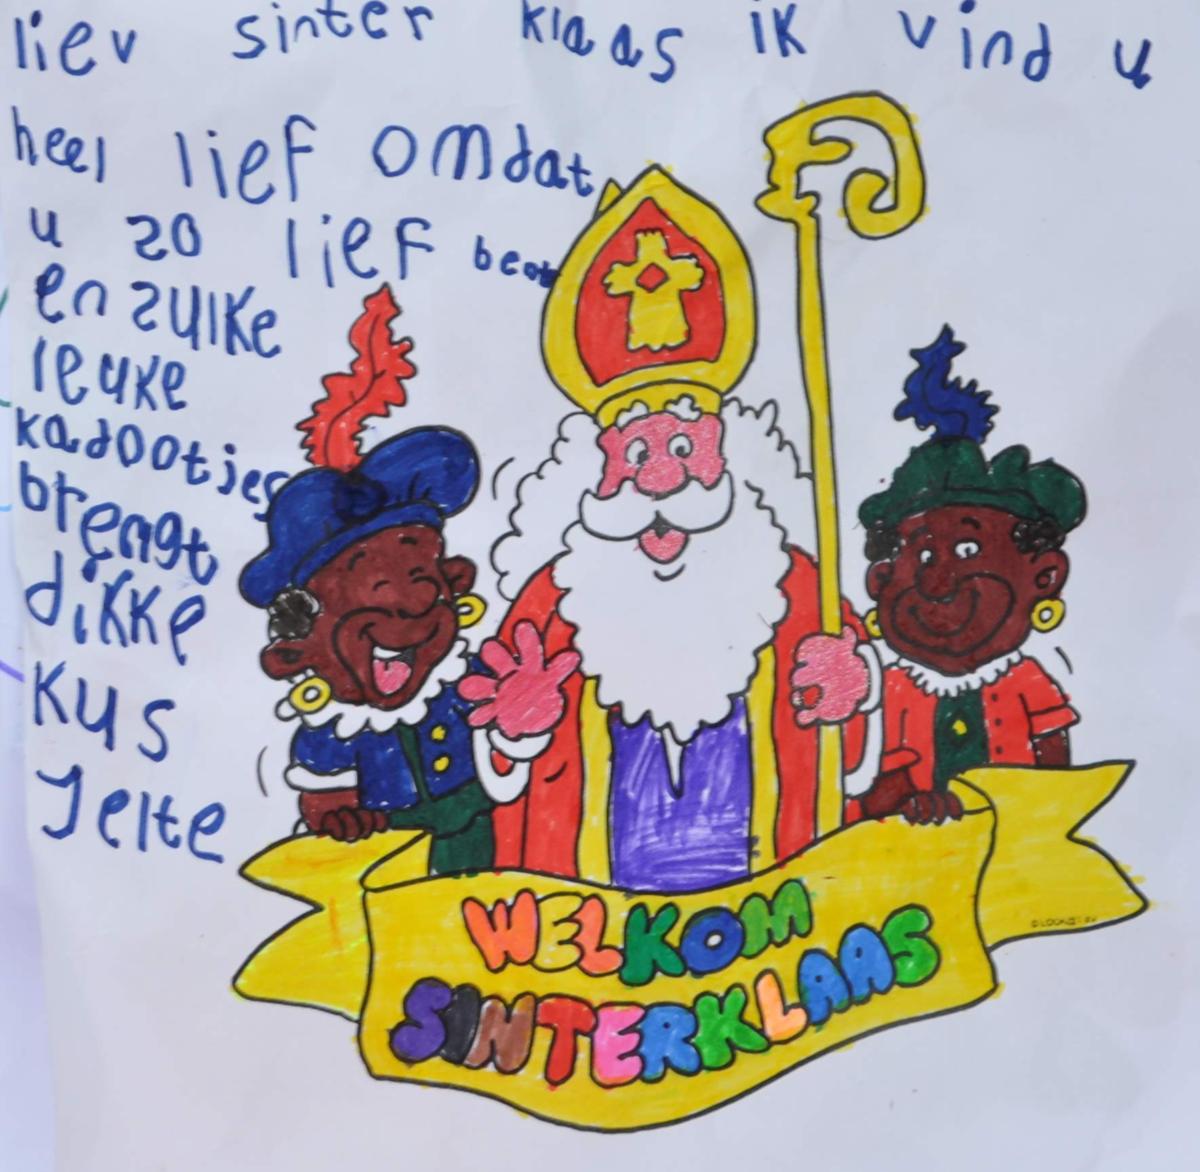 liev sinter klaas ik vind u
heel lief omdat
u zo lief bent
en zulke
leuke
kadootjes
brengt
dikke
kus
Jelte
WELKOM
SINTERKLAAS